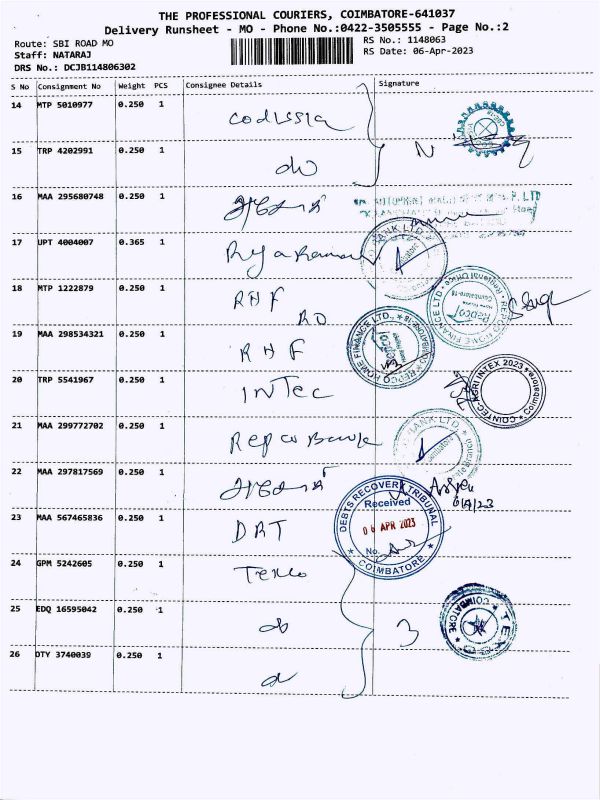 THE PROFESSIONAL COURIERS, COIMBATORE-641037
Delivery Runsheet - MO - Phone No.:0422-3505555 - Page No.:2
Route: SBI ROAD MO
RS No.: 1148063
Staff: NATARAJ
RS Date: 06-Apr-2023
DRS No.: DCJB114806302
S No Consignment No Weight PCS Consignee Details Signature
14 MTP 5010977 0.250 1 codissia
15 TRP 4202991 0.250 1 do
16 MAA 295680748 0.250 1
17 UPT 4004007 0.365 1
BANK LTD
Coimbatore
18 MTP 1222879 0.250 1 RHF
RO
REPCO HOME FINANCE LTD
Regional Office
Repco
Coimbatore-18
19 MAA 298534321 0.250 1 RHF
REPCO HOME FINANCE LTD., COIMBATORE-18
Repco
20 TRP 5541967 0.250 1 INTEC
COINTEC-AGRI INTEX 2023
Coimbatore
21 MAA 299772702 0.250 1 Repco Bank
BANK LTD.
Coimbatore
22 MAA 297817569 0.250 1
6/4/23
23 MAA 567465836 0.250 1 DRT
DEBTS RECOVERY TRIBUNAL
Received
06 APR 2023
No.
COIMBATORE
24 GPM 5242605 0.250 1 Texco
25 EDQ 16595042 0.250 1 do
3
TEXCO
COIMBATORE
26 DTY 3740039 0.250 1